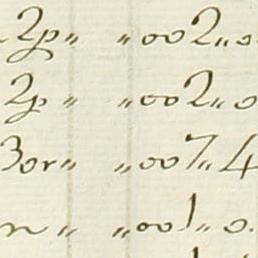 2p „ „ 002 „ 0
2p „ „ 002 „ 0
30r „ „ 007 „ 4
n „ „ 001 „ 0.